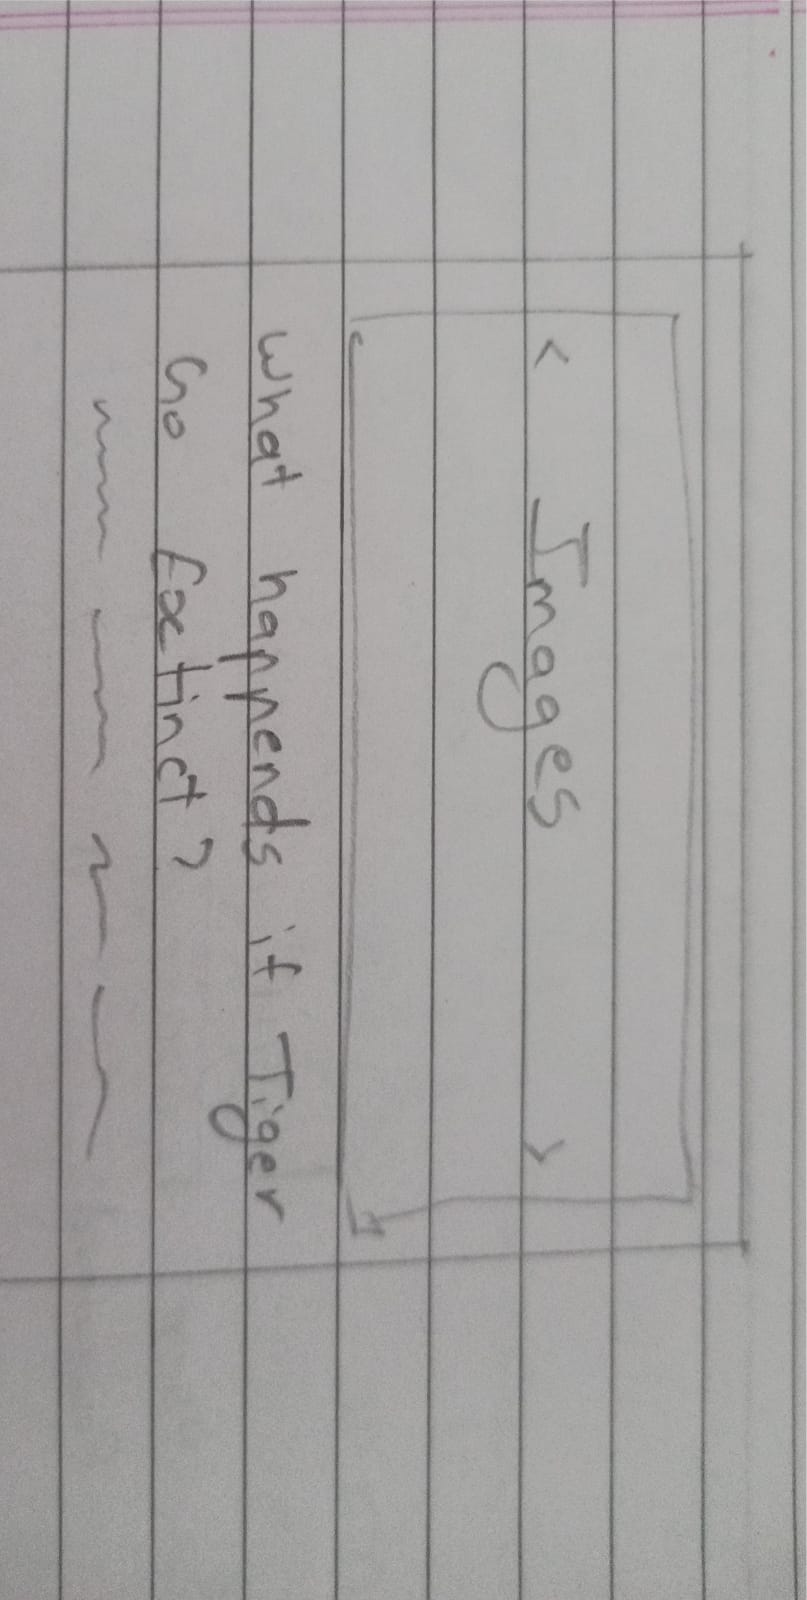 < Images >
What happends if Tiger
Go Extinct?